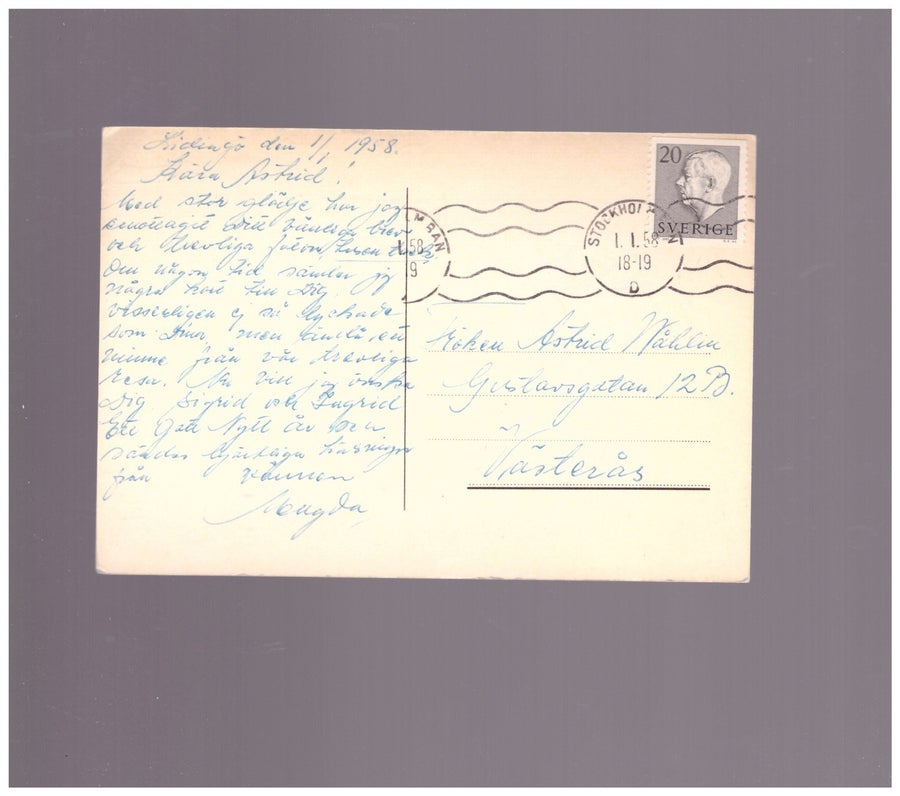 Lidingö den 1/1 1958.
Kära Astrid!
Med stor glädje har jag
emottagit Ditt vänliga brev
och trevliga foton,
Om någon tid sänder jag
några kort till Dig,
visserligen ej så lyckade
som Dina, men ändå ett
minne från vår trevliga
resa. Nu vill jag önska
Dig, Sigrid och Ingrid
Ett Gott Nytt år och
sändes hjärtliga hälsningar
från vännen
Magda
20
SVERIGE
STOCKHOLM
1.1.58
18-19
D
MBAN
1.58
9
Fröken Astrid Wåhlin
Gustavsgatan 12 B.
Västerås